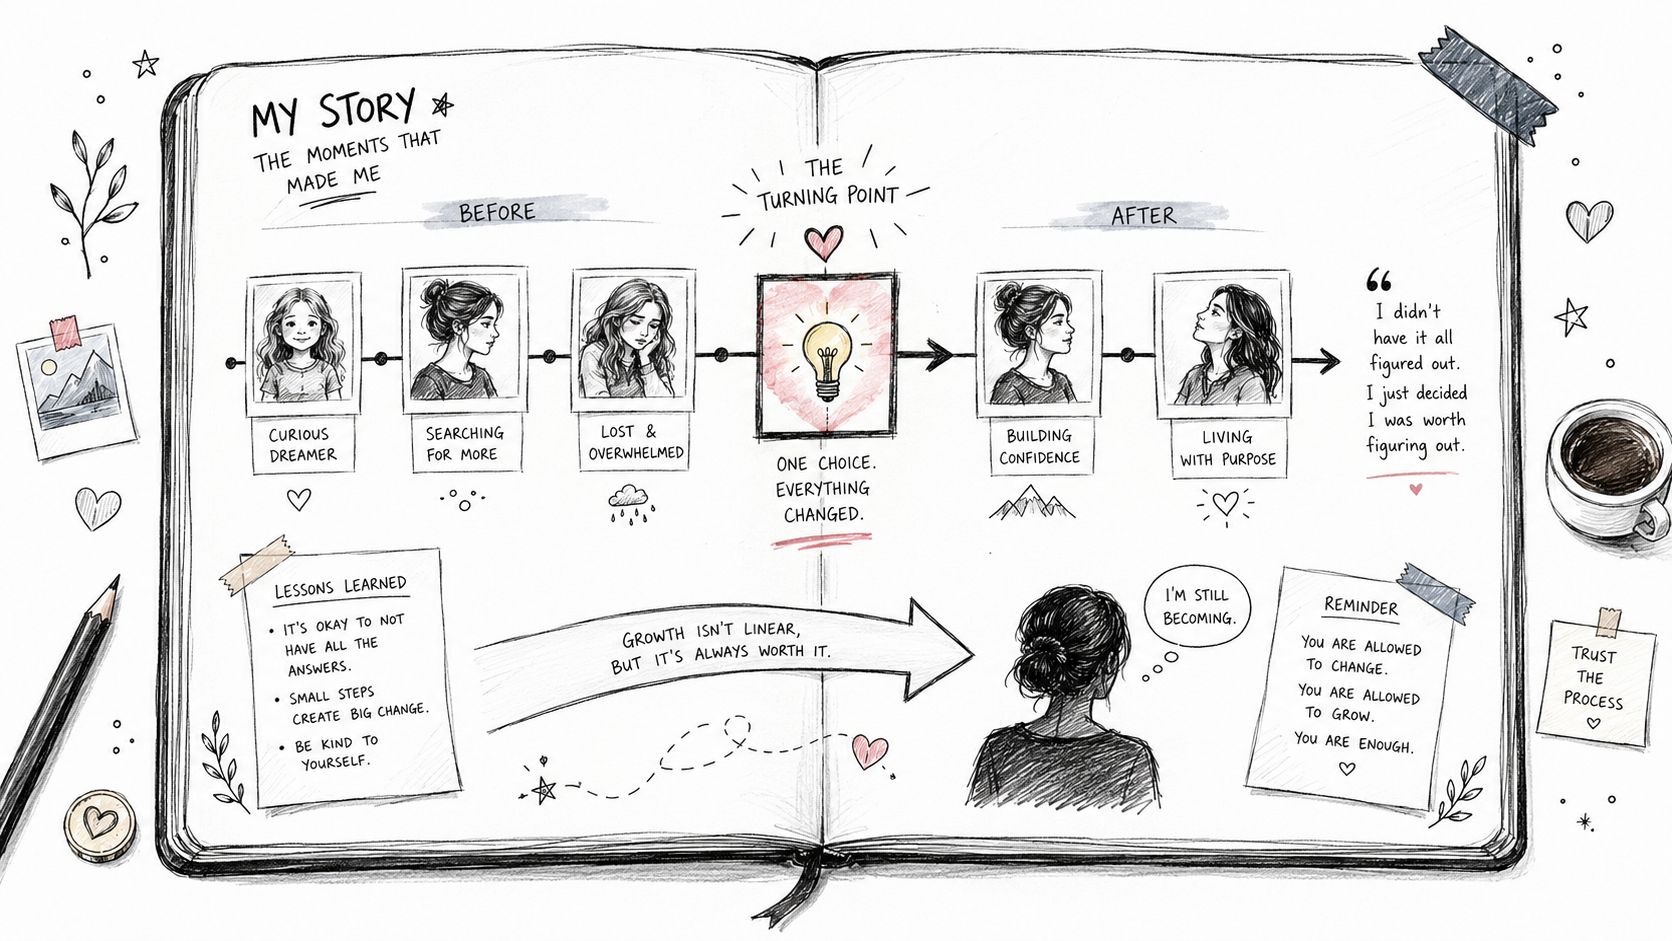 MY STORY
THE MOMENTS THAT
MADE ME
BEFORE
THE
TURNING POINT
AFTER
CURIOUS
DREAMER
SEARCHING
FOR MORE
LOST &
OVERWHELMED
ONE CHOICE.
EVERYTHING
CHANGED.
BUILDING
CONFIDENCE
LIVING
WITH PURPOSE
“
I didn't
have it all
figured out.
I just decided
I was worth
figuring out.
LESSONS LEARNED
• IT'S OKAY TO NOT
HAVE ALL THE
ANSWERS.
• SMALL STEPS
CREATE BIG CHANGE.
• BE KIND TO
YOURSELF.
GROWTH ISN'T LINEAR,
BUT IT'S ALWAYS WORTH IT.
I'M STILL
BECOMING.
REMINDER
YOU ARE ALLOWED
TO CHANGE.
YOU ARE ALLOWED
TO GROW.
YOU ARE ENOUGH.
TRUST
THE
PROCESS